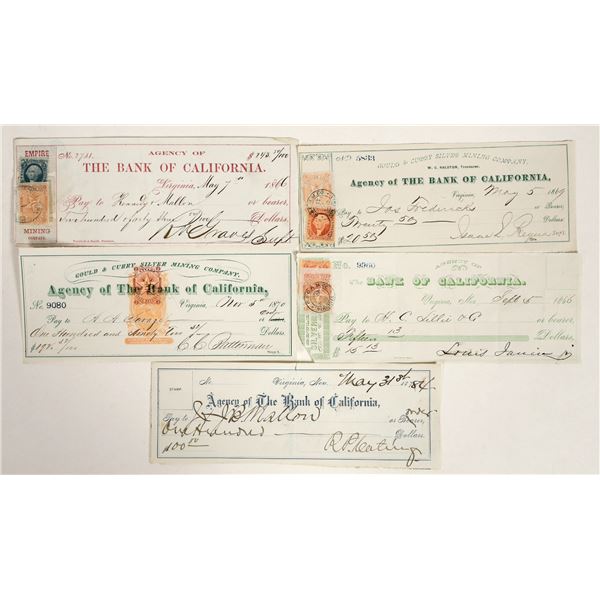 EMPIRE
MINING
COMPANY.
No. 2731.
AGENCY OF
$243 37/100
THE BANK OF CALIFORNIA.
Virginia, May 7th 1866
Pay to Kennedy & Mallon or bearer,
Two hundred & forty three 37/100 Dollars,
Supt
No. 5833
GOULD & CURRY SILVER MINING COMPANY,
W. C. RALSTON, Treasurer.
Agency of THE BANK OF CALIFORNIA,
Virginia, May 5 1869
Pay to Jos Fredericks or bearer,
Twenty 50 Dollars.
$20 50
Supt.
GOULD & CURRY SILVER MINING COMPANY.
Agency of The Bank of California,
No. 9080 Virginia, Nov 5th 1870
Pay to A. A. or bearer order
One Hundred and Ninety two 37/ Dollars.
$192. 37/100
No. 9360
AGENCY OF
The BANK OF CALIFORNIA.
Virginia, Nev Sept 5 1866
Pay to H. C. Lillie & Co or bearer,
Fifteen 13 Dollars,
$15 13
Louis Janin Jr
STAMP
No. Virginia, Nev. May 31st 1884
Agency of The Bank of California,
Pay to J. B. Mallon or Bearer, order
One Hundred Dollars.
$100 00
R. P. Keating